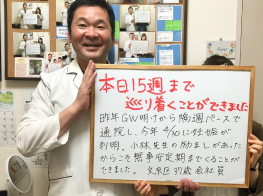 本日15週まで
巡り着くことができました
昨年GW明けから隔週ペースで
通院し、今年4/30に妊娠が
判明。小林先生の励ましがあった
からこそ無事安定期までくることが
できました。文京区37歳会社員